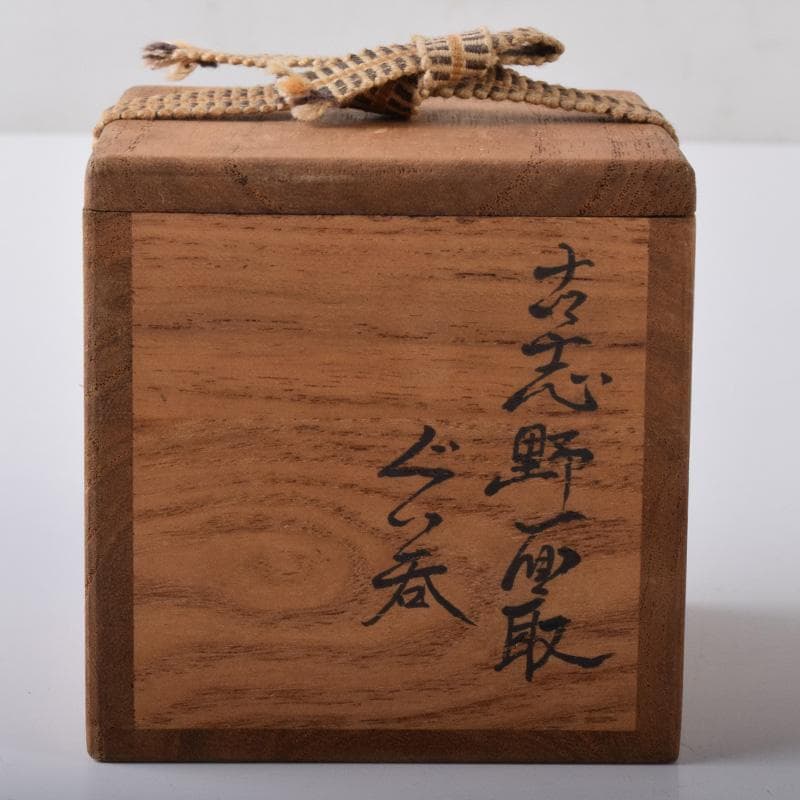 古志野面取
ぐい呑